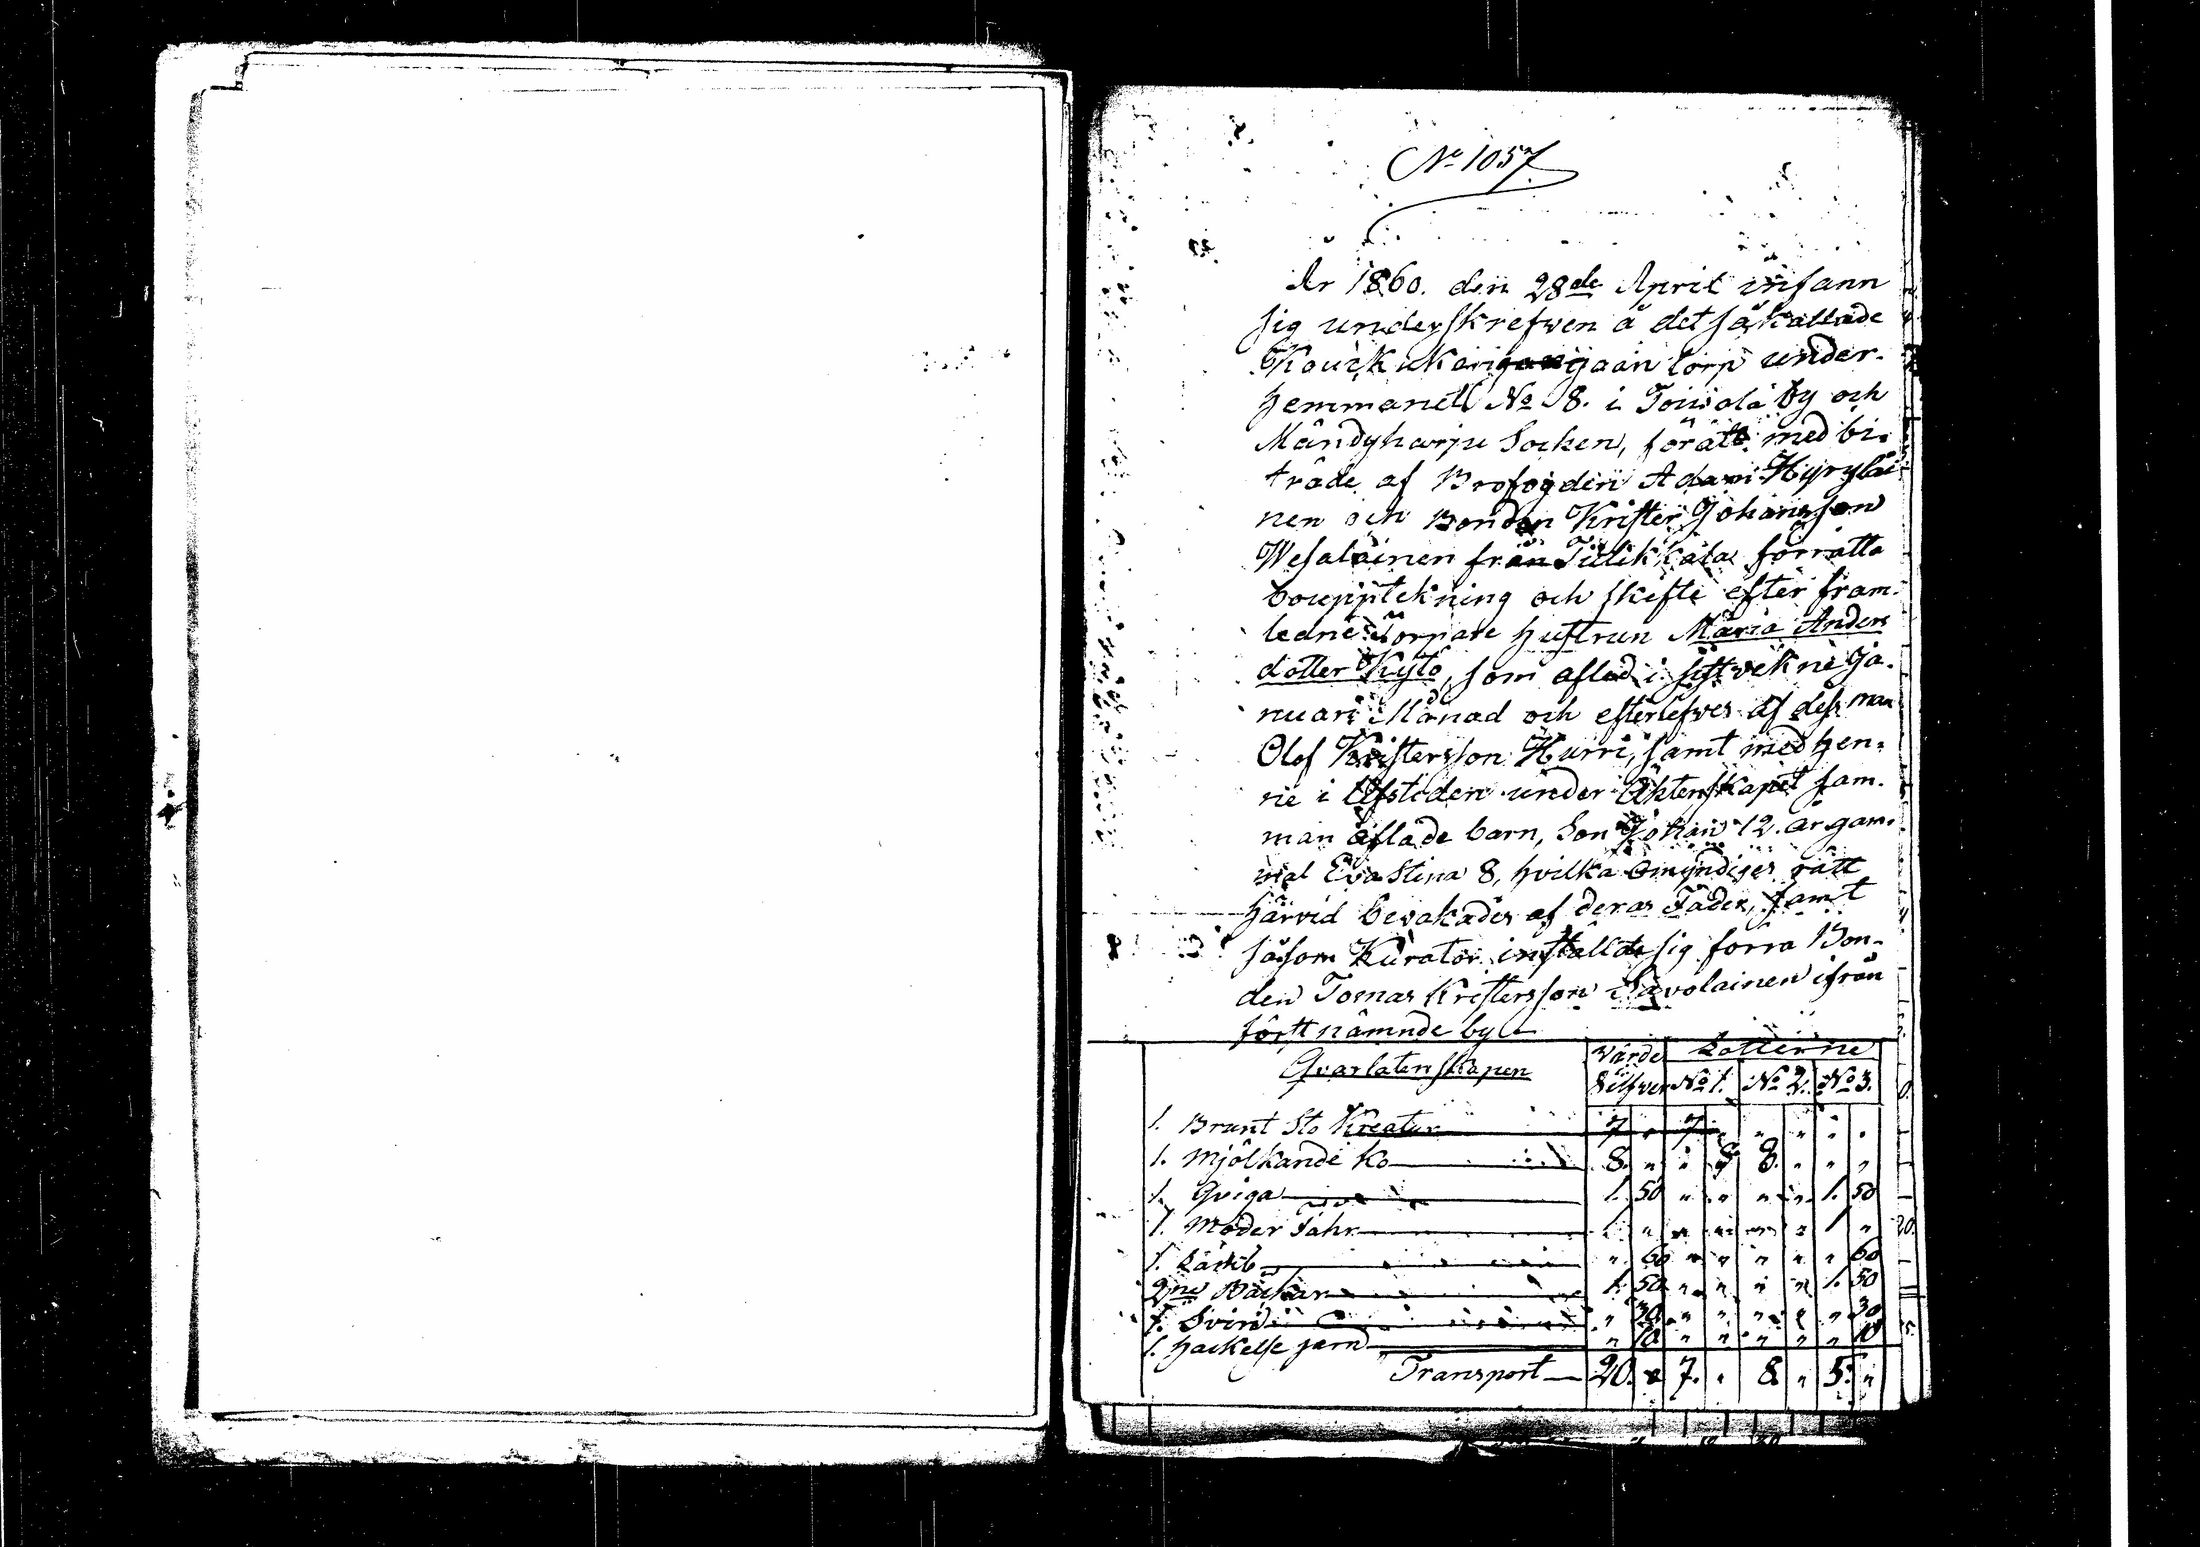 No 1057.
År 1860. den 28de April infann
sig underskrefwen å det så kallade
torp under
hemmanet No 8. i Toiwola by och
Mändyharju Socken, föratt med bi-
träde af Brofogden Adam Hyryläi-
nen och Bonden Krister Johansson
Wesalainen från förrätta
bouppteckning och skifte efter fram-
ledne Torpare hustrun Maria Anders
dotter Kylö, som afled i sistvekne Ja-
nuari Månad och efterlefves af dess man
Olof Kristersson Hurri, samt med hen-
ne i lifstiden under Äktenskapet sam-
man aflade barn, Son Johan 12. år gam-
mal Eva Stina 8, hvilka omyndiges rätt
härvid bevakades af deras Fader, samt
såsom Kurator instälde sig förra Bon-
den Tomas Kristersson Savolainen ifrån
först nämnde by
Qvarlatenskapen Värde Silfver Lotterne No 1. No 2. No 3.
1. Brunt Sto Kreatur 7 " 7 " " " " "
1. Mjölkande Ko 8. " " " 8. " " "
1. Qviga 1. 50 " " " " 1. 50
1. Moder Fahr 1. " " " " " 1 "
1. Lamb " 60 " " " " " 60
2ne Bäckar 1. 50 " " " " 1. 50
1. Svin " 30 " " " " " 30
1. Hackelse jern " 10 " " " " " 10
Transport 20. " 7. " 8. " 5. "